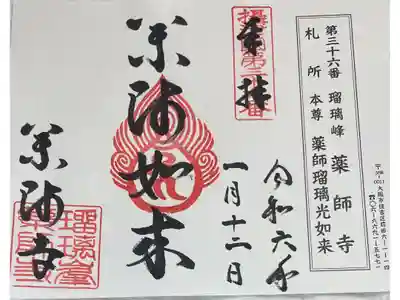 第三十六番 瑠璃峰 薬師寺
札所 本尊 薬師瑠璃光如来
奉拝
令和六年
一月十二日
薬師如来
薬師寺